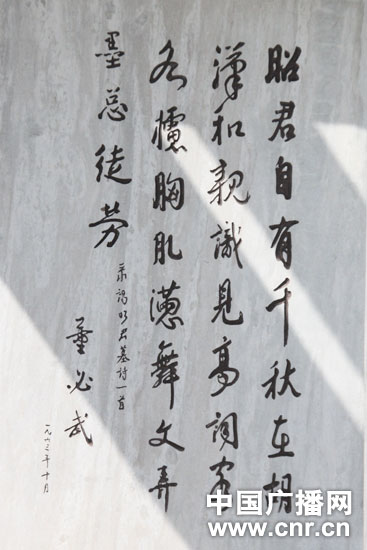 昭君自有千秋在胡
漢和親識見高詞客
各攄胸肊懣舞文弄
墨总徒劳
謁昭君墓詩一首
董必武
一九六三年十月
中国广播网
www.cnr.cn